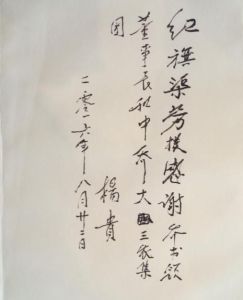 纪旗渠劳模感谢齐书领
董事长和中乔大三农集
团
杨贵
二零一六年八月廿二日